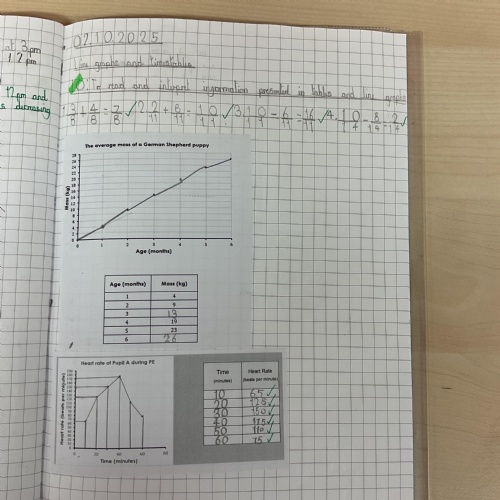 at 3pm
12pm
12pm and
s decreasing
02.10.2025
Line graphs and timetables
LO: To read and interpret information presented in tables and line graphs
3/8 + 4/8 = 7/8 ✓ 2. 2/11 + 8/11 = 10/11 ✓
The average mass of a German Shepherd puppy
Mass (kg)
28
26
24
22
20
18
16
14
12
10
8
6
4
2
0
0 1 2 3 4 5 6
Age (months)
Age (months) Mass (kg)
1 4
2 9
3 13
4 19
5 23
6 26
Heart rate of Pupil A during PE
Heart rate (beats per minute)
0 20 40 60 80
Time (minutes)
Time (minutes) Heart Rate (beats per minute)
10 65 ✓
20 125 ✓
30 150 ✓
40 175 ✓
50 110 ✓
60 75 ✓